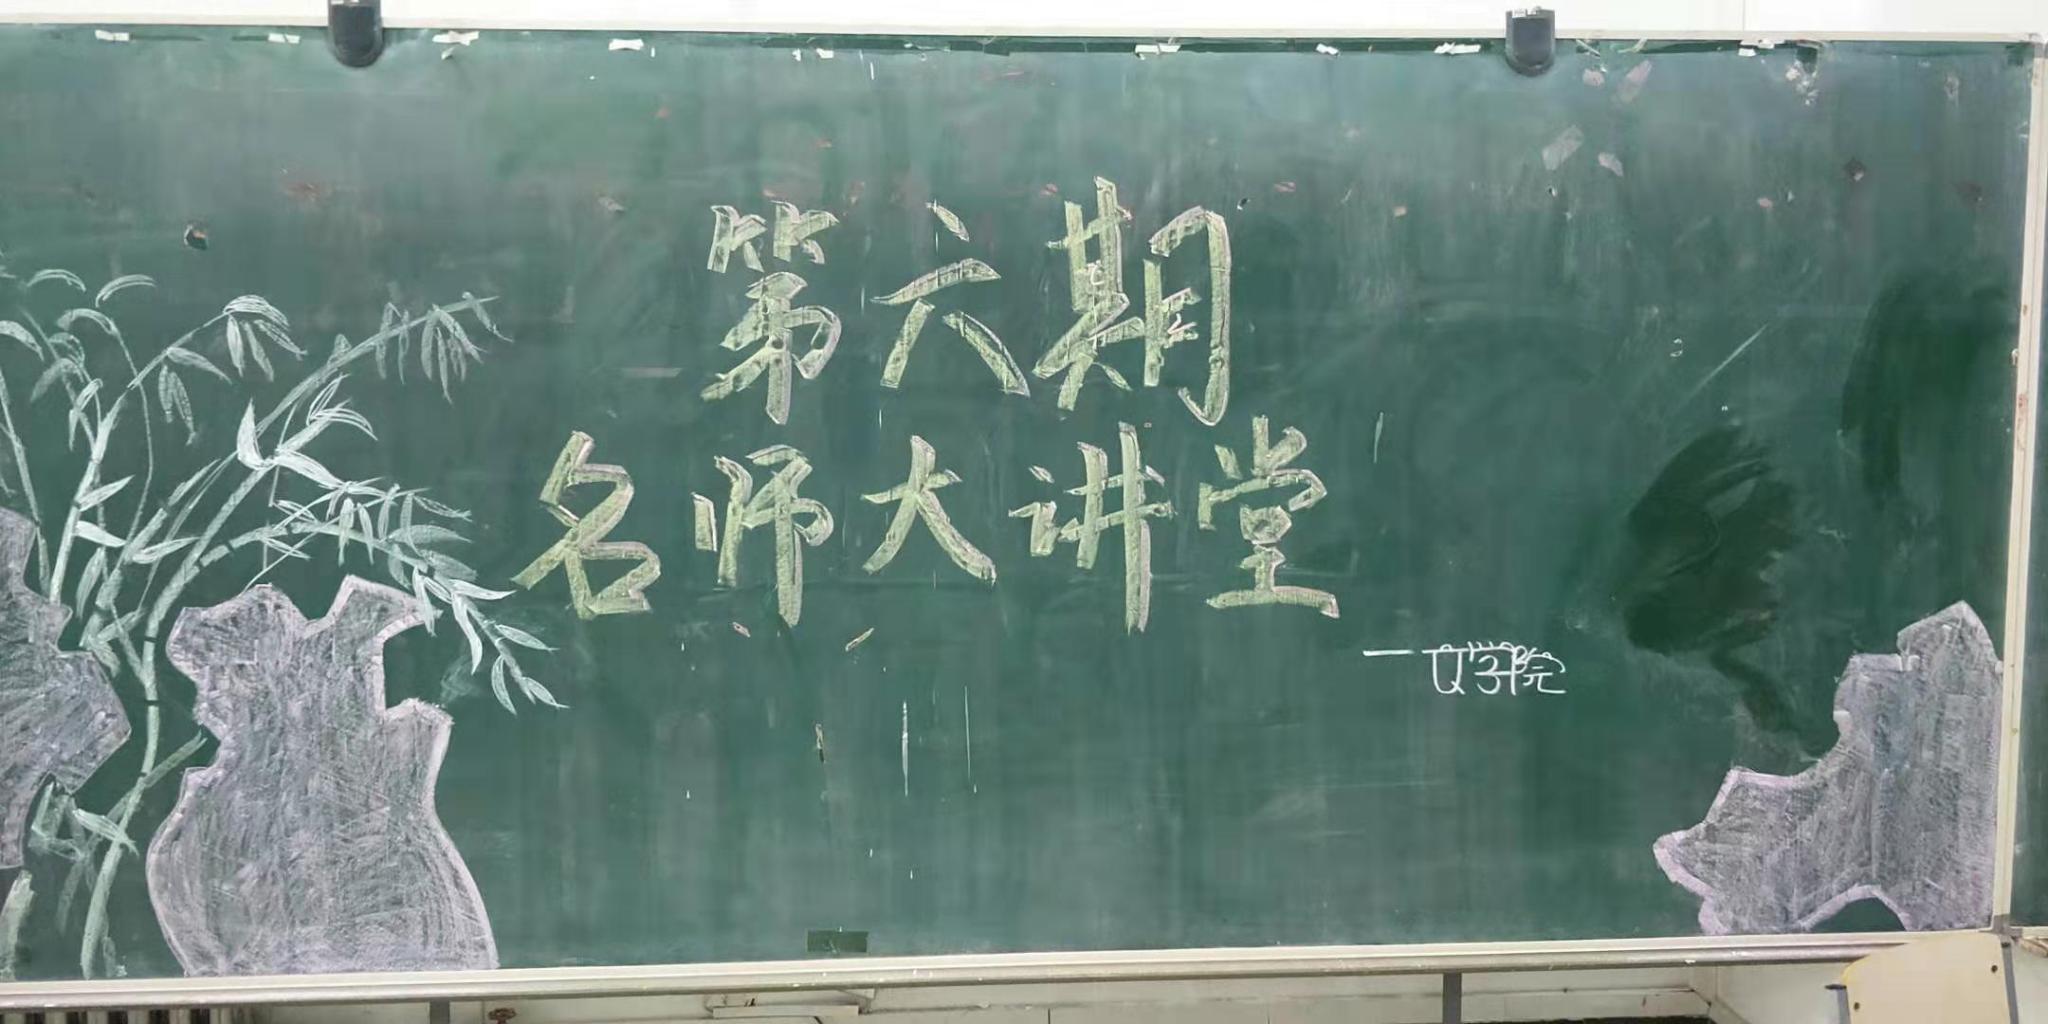 第六期
名师大讲堂
学院